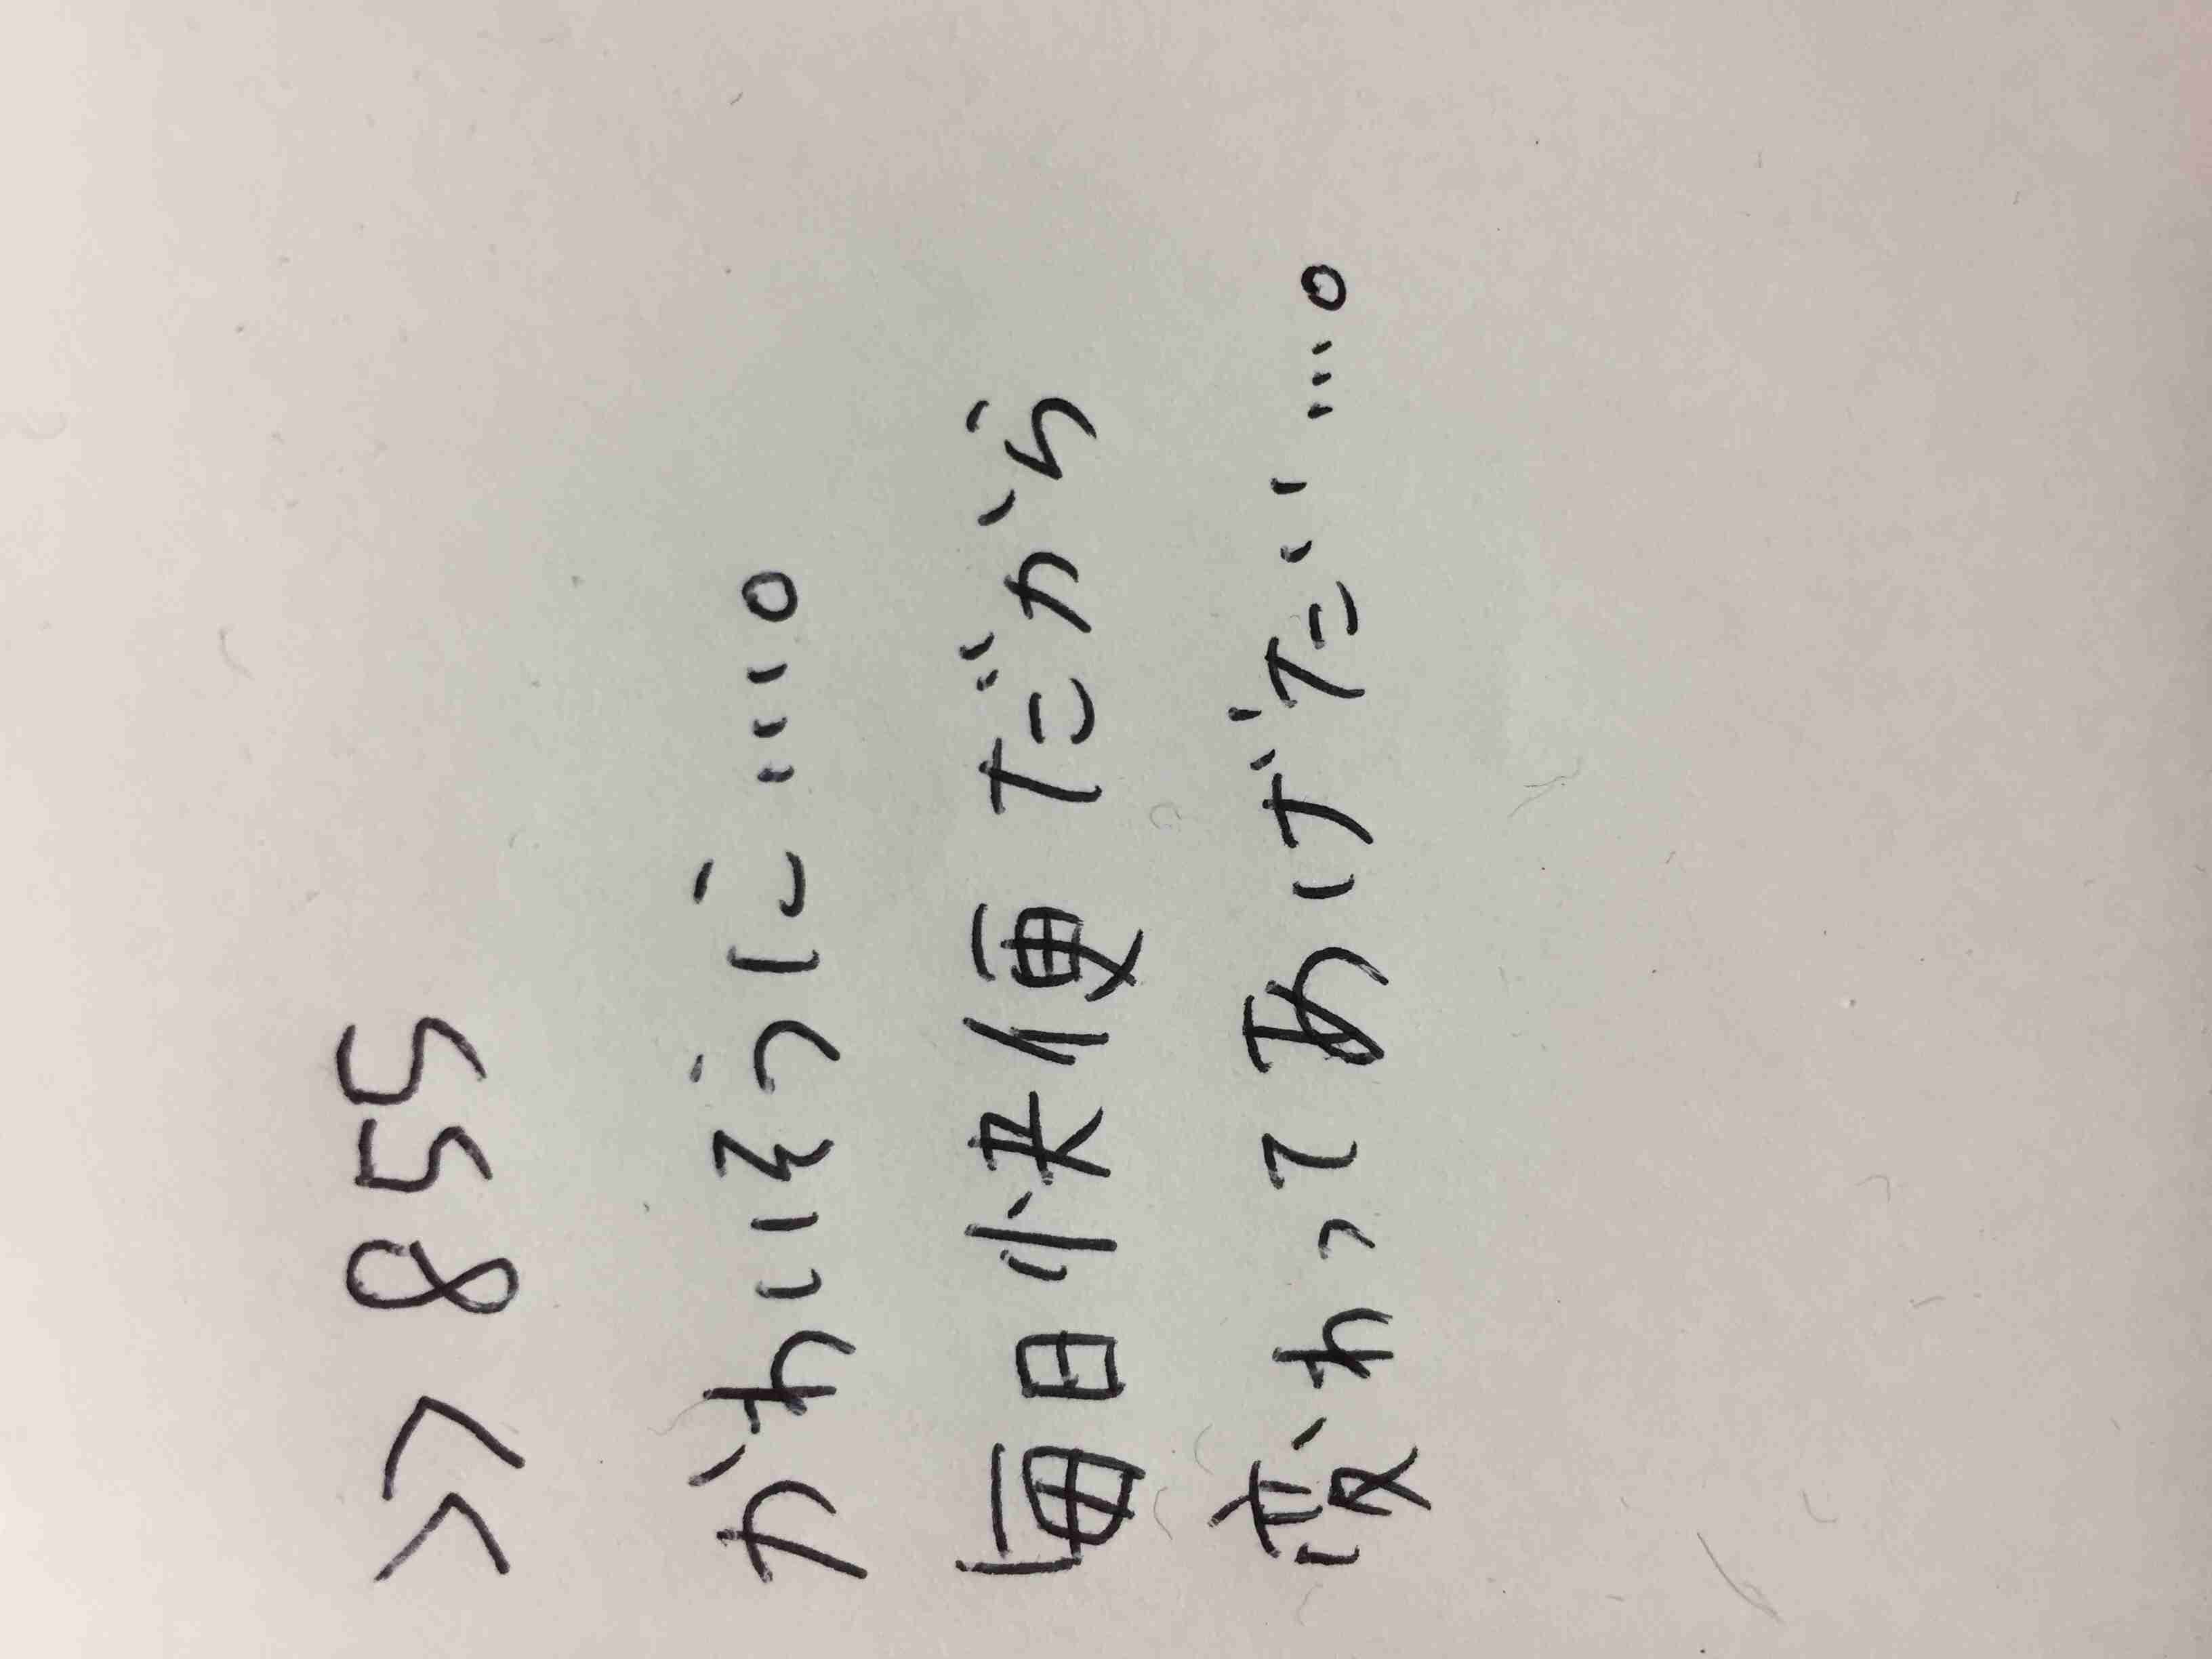 >>855
かわいそうに…。
毎日快便だから
変わってあげたい…。